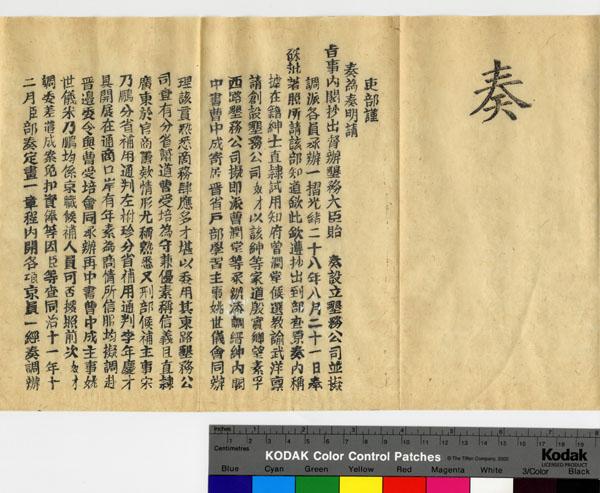 奏
吏部謹
奏為奏明請
旨事內閣抄出督辦墾務大臣貽 奏設立墾務公司並擬
調派各員承辦一摺光緒二十八年八月二十一日奉
硃批著照所請該部知道欽此欽遵抄出到部查原奏內稱
據在籍紳士直隸試用知府曾潤堂候選教諭武洋稟
請創設墾務公司以該紳等家道殷實鄉望素孚
西路墾務公司擬即派曹潤堂等承辦調縉紳內閣
中書曹中成寄居晉省戶部學習主事姚世儀會同辦
理該員熟悉商務肆應多才堪以委用其東路墾務公
司查有分省補道曹受培為守兼優素稱信義且直隸
廣東於官商票款情形尤稱熟悉又刑部候補主事宋
乃鵬分省補用通判左樹珍分省補用通判李年慶才
具開展在通商口岸有年素為商情所信服均擬調赴
晉邊委令與曹受培會同承辦再中書曹中成主事姚
世儀宋乃鵬均係京職候補人員可否援照前次
調委差遣成案免扣資俸等因臣等查同治十一年十
二月臣部奏定畫一章程內開各項京員一經奏調辦
inches 1 2 3 4 5 6 7 8
Centimetres 1 2 3 4 5 6 7 8 9 10 11 12 13 14 15 16 17 18 19
KODAK Color Control Patches © The Tiffen Company, 2000 Kodak
LICENSED PRODUCT
Blue Cyan Green Yellow Red Magenta White 3/Color Black